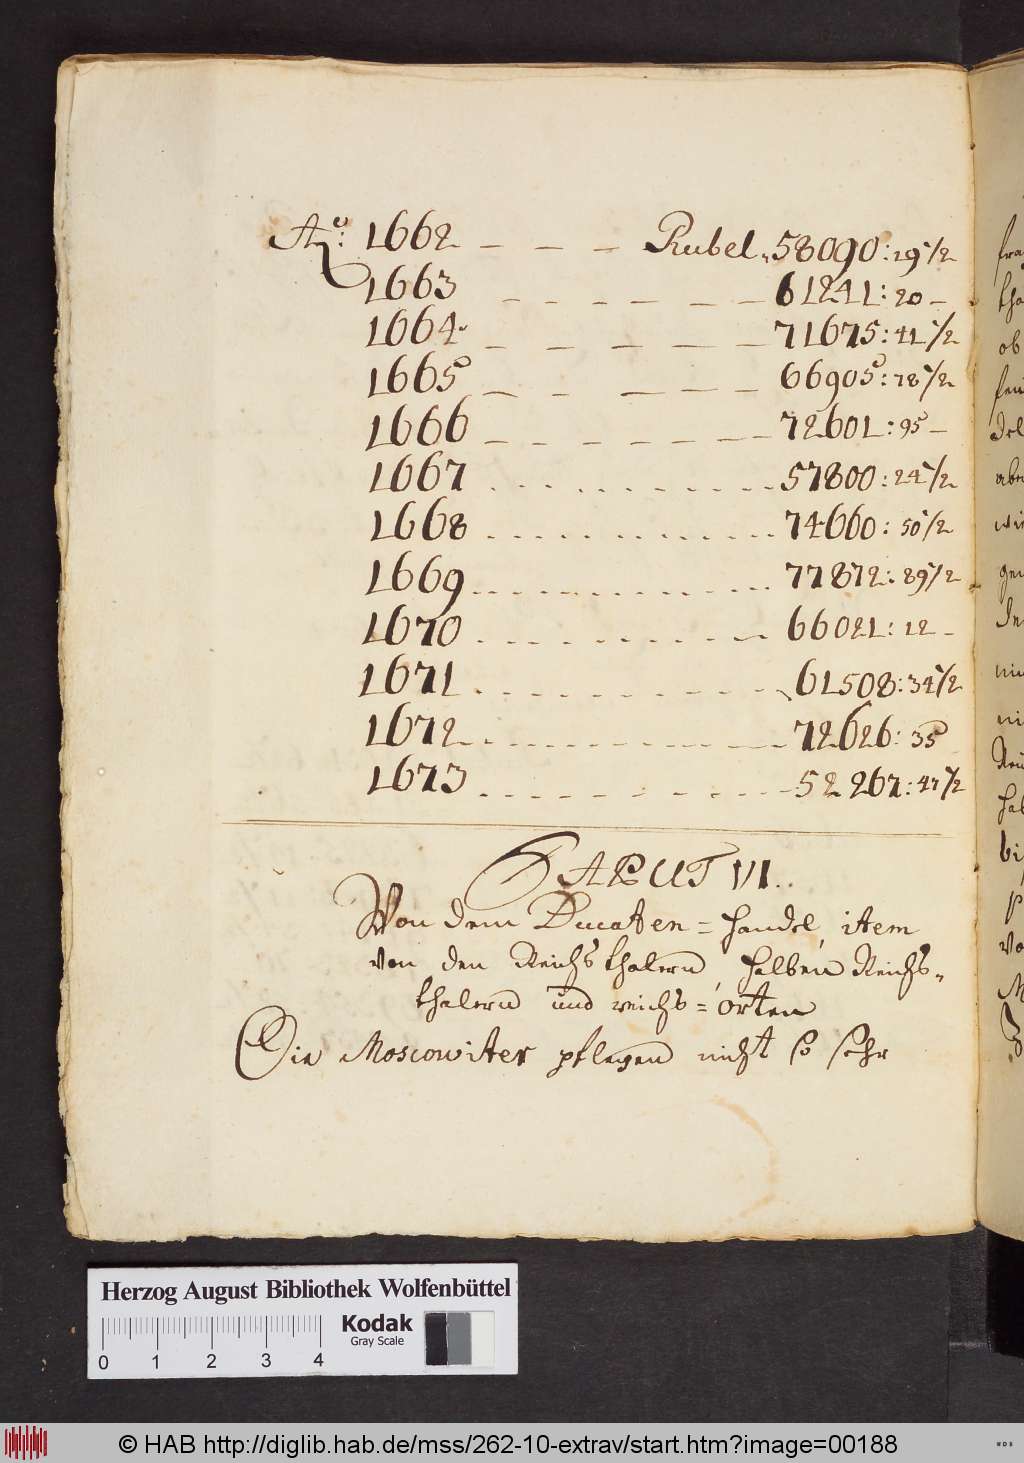 Aõ: 1662 - - - Rubel 58090: 29 1/2
1663 - - - - - - 61241: 20 -
1664 - - - - - - 71675: 41 1/2
1665 - - - - - - 66905: 78 1/2
1666 - - - - - - 72601: 95 -
1667 - - - - - - 57800: 24 1/2
1668 - - - - - - 74660: 50 1/2
1669 - - - - - - 77872: 89 1/2
1670 - - - - - - 66021: 12 -
1671 - - - - - - 61508: 34 1/2
1672 - - - - - - 72626: 35
1673 - - - - - - 52267: 47 1/2
CAPUT VI.
Von dem Ducaten = handel, item
von den Reichsthalern, halben Reichs-
thalern und reichs = orten
Die Moscowiter pflegen nicht so sehr
Herzog August Bibliothek Wolfenbüttel
Kodak
Gray Scale
0 1 2 3 4
© HAB http://diglib.hab.de/mss/262-10-extrav/start.htm?image=00188